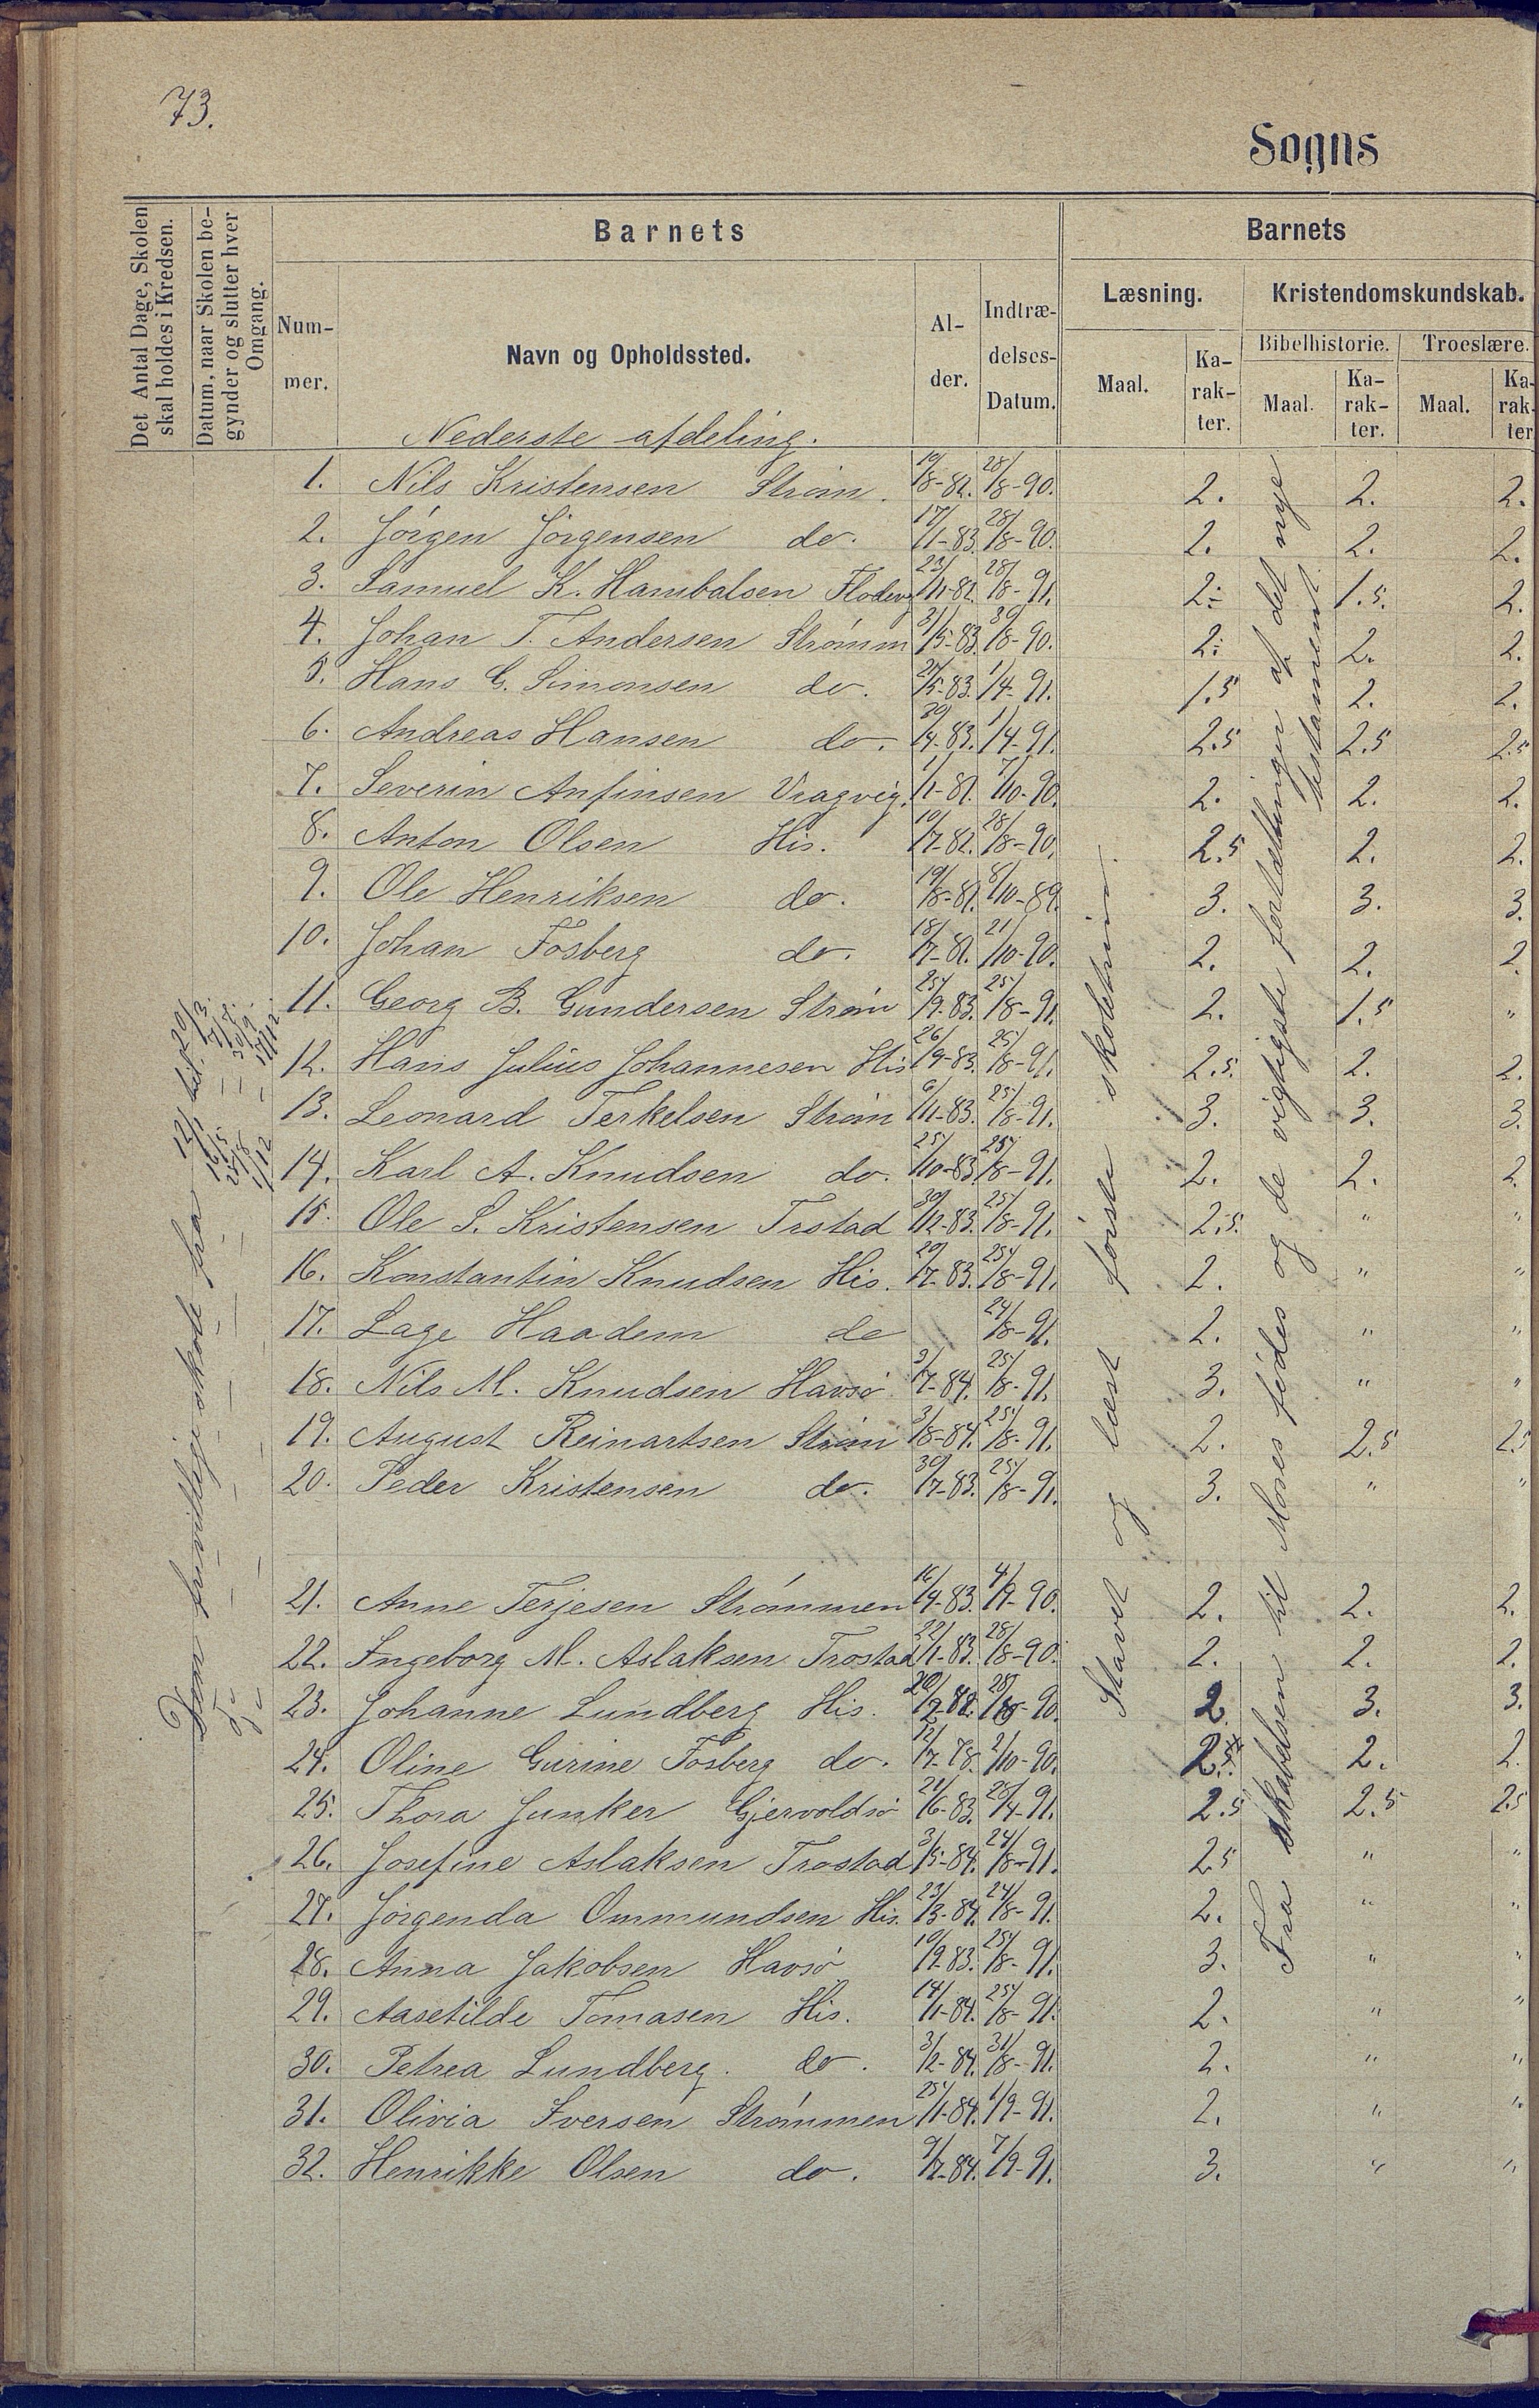 73.
Sogns
Det Antal Dage, Skolen skal holdes i Kredsen.
Datum, naar Skolen begynder og slutter hver Omgang.
Barnets
Nummer.
Navn og Opholdssted.
Alder.
Indtrædelses-Datum.
Barnets
Læsning.
Kristendomskundskab.
Maal.
Karakter.
Bibelhistorie.
Troeslære.
Maal.
Karakter.
Maal.
Karakter
Nederste afdeling.
1. Nils Kristensen Strøm. 19/8-82. 28/8-90. 2. 2. 2.
2. Jörgen Jörgensen do. 17/1-83. 28/8-90. 2. 2. 2.
3. Samuel K. Hambalsen 23/11-82. 28/8-91. 2. 1.5. 2.
4. Johan T. Andersen Strømm 31/5-83. 30/8-90. 2. 2. 2.
5. Hans G. Simonsen do. 21/5-83. 1/4-91. 1.5 2. 2.
6. Andreas Hansen do. 30/4-83. 1/4-91. 2.5 2.5 2.5
7. Severin Anfinsen Vragvig. 1/1-81. 7/10-90. 2. 2. 2.
8. Anton Olsen His. 10/7-82. 28/8-90. 2.5 2. 2.
9. Ole Henriksen do. 19/8-81. 8/10-89. 3. 3. 3.
10. Johan Fosberg do. 18/7-81. 21/10-90. 2. 2. 2.
11. Georg B. Gundersen Strøm 25/9-83. 25/8-91. 2. 1.5 "
12. Hans Julius Johannesen His 26/9-83. 25/8-91. 2.5. 2. 2.
13. Leonard Terkelsen Strøm 6/11-83. 25/8-91. 3. 3. 3.
14. Karl A. Knudsen do. 25/10-83 25/8-91. 2. 2. 2.
15. Ole S. Kristensen Trstad 30/12-83. 25/8-91. 2.5. " "
16. Konstantin Knudsen His. 20/7-83. 25/8-91. 2. " "
17. Lage Haadem do 24/8-91. 2. " "
18. Nils M. Knudsen Havsø 9/7-84. 25/8-91. 3. " "
19. August Reinartsen Strøm 3/8-84. 25/8-91. 2. 2.5 2.5
20. Peder Kristensen do. 30/7-83. 25/8-91. 3. " "
21. Anne Terjesen Strømmen 16/9-83. 4/9-90. 2. 2. 2.
22. Ingeborg M. Aslaksen Trostad 22/1-83. 28/8-90. 2. 2. 2.
23. Johanne Lundberg His. 20/9-82. 2 3. 3.
24. Oline Gurine Fosberg do. 12/7-78. 2/10-90. 2.5 2. 2.
25. Thora Junker Gjervoldsø 21/6-83. 20/4-91. 2.5 2.5 2.5
26. Josefine Aslaksen Trostad 3/5-84. 24/8-91. 2.5 " "
27. Jørgenda Ommundsen His. 23/3-84. 24/8-91. 2. " "
28. Anna Jakobsen Havsø 10/9-83. 25/8-91. 3. " "
29. Aasetilde Tomasen His. 14/1-84. 25/8-91. 2. " "
30. Petrea Lundberg. do. 3/2-84. 31/8-91. 2. " "
31. Olivia Iversen Strømmen 25/1-84. 1/9-91. 2. " "
32. Henrikke Olsen do. 9/7-84. 7/9-91. 3. " "
Stavet og læst første skoletrin.
Fra skabelsen til Moses födes og de vigtigste fortællinger af det nye
testament
frivillige skole fra 12/1 til 20/3.